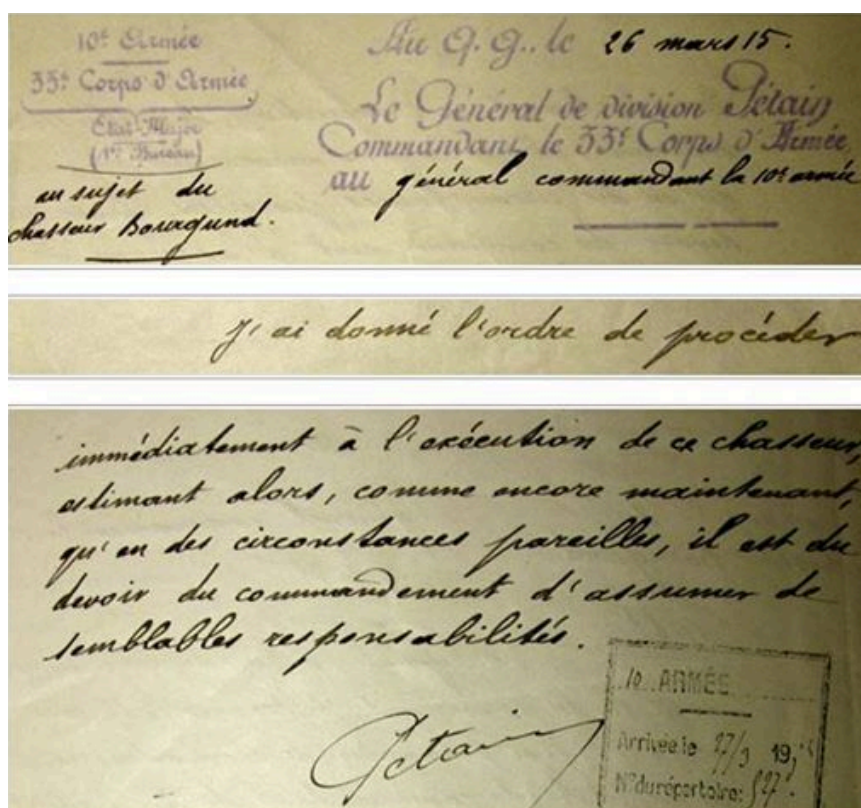 10e Armée
33e Corps d'Armée
État-Major
(1er Bureau)
au sujet du
chasseur Bourgund.
Au Q.G., le 26 mars 15.
Le Général de division Pétain
Commandant le 33e Corps d'Armée
au général commandant la 10e armée
j'ai donné l'ordre de procéder
immédiatement à l'exécution de ce chasseur,
estimant alors, comme encore maintenant,
qu'en des circonstances pareilles, il est du
devoir du commandement d'assumer de
semblables responsabilités.
Petain
10 ARMÉE
Arrivée le 27/3 19
N° du répertoire: 527